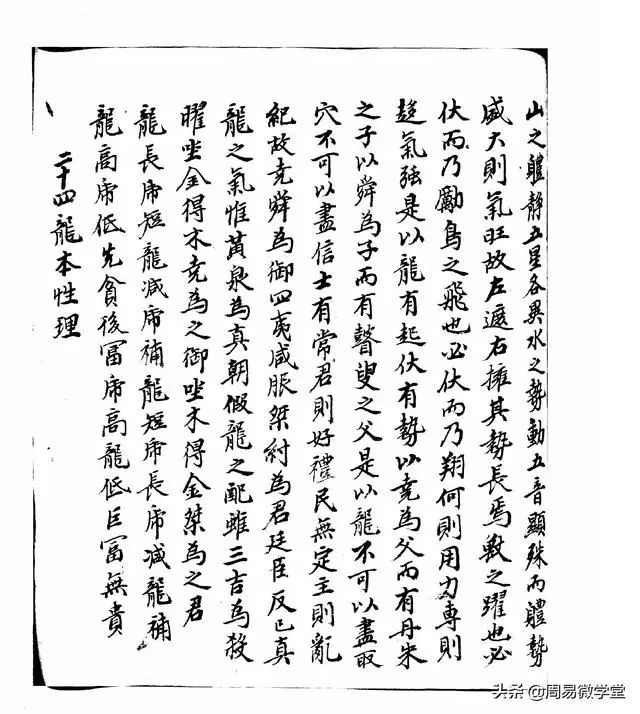 山之體静五星各異水之勢動五音顯殊而體勢
威大則氣旺故左遮右擁其勢長焉獸之躍也必
伏而乃勵鳥之飛也必伏而乃翔何則用力專則
發氣强是以龍有起伏有勢以堯為父而有丹朱
之子以舜為子而有瞽叟之父是以龍不可以盡取
穴不可以盡信士有常君則好禮民無定主則亂
紀故堯舜為御四夷咸服桀紂為君廷臣反已真
龍之氣惟黄泉為真朝假龍之配雖三吉為殺
曜坐金得木堯為之御坐木得金桀為之君
龍長席短龍减席補龍短席長席减龍補
龍高席低先貪後冨席高龍低巨冨無貴
二十四龍本性理
头条 @周易微学堂